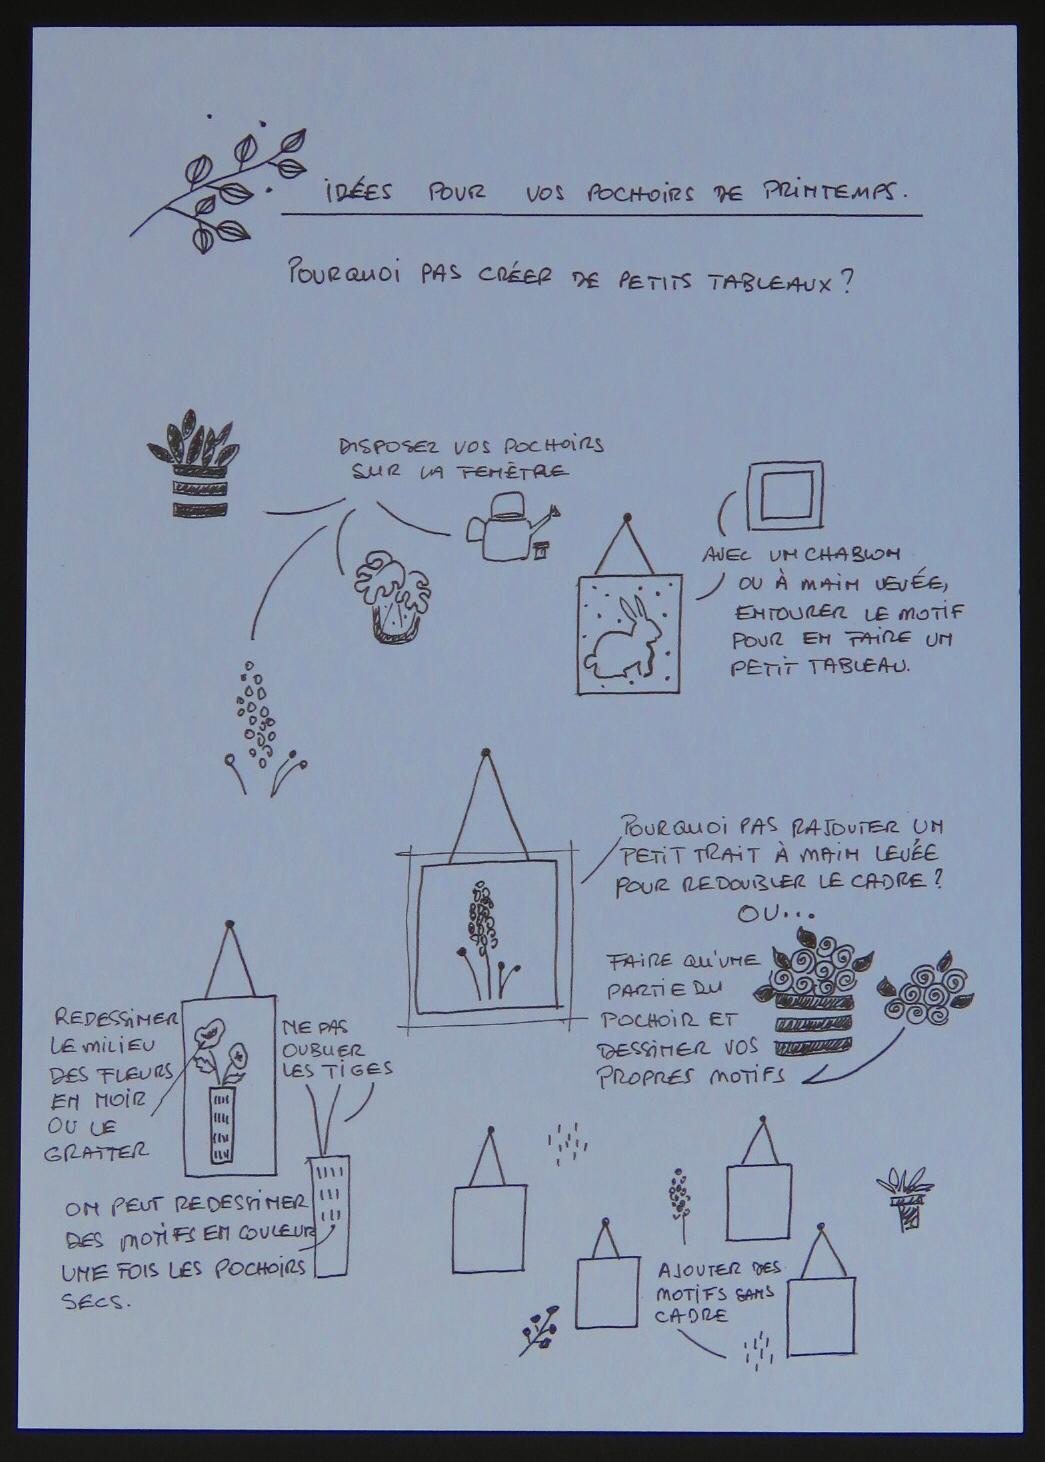 IDÉES POUR VOS POCHOIRS DE PRINTEMPS.
POURQUOI PAS CRÉER DE PETITS TABLEAUX ?
DISPOSEZ VOS POCHOIRS
SUR LA FENÊTRE
AVEC UN CHABLON
OU À MAIN LEVÉE,
ENTOURER LE MOTIF
POUR EN FAIRE UN
PETIT TABLEAU.
POURQUOI PAS RAJOUTER UN
PETIT TRAIT À MAIN LEVÉE
POUR REDOUBLER LE CADRE ?
OU...
FAIRE QU'UNE
PARTIE DU
POCHOIR ET
DESSINER VOS
PROPRES MOTIFS
REDESSINER
LE MILIEU
DES FLEURS
EN NOIR
OU LE
GRATTER
NE PAS
OUBLIER
LES TIGES
ON PEUT REDESSINER
DES MOTIFS EN COULEUR
UNE FOIS LES POCHOIRS
SECS.
AJOUTER DES
MOTIFS SANS
CADRE